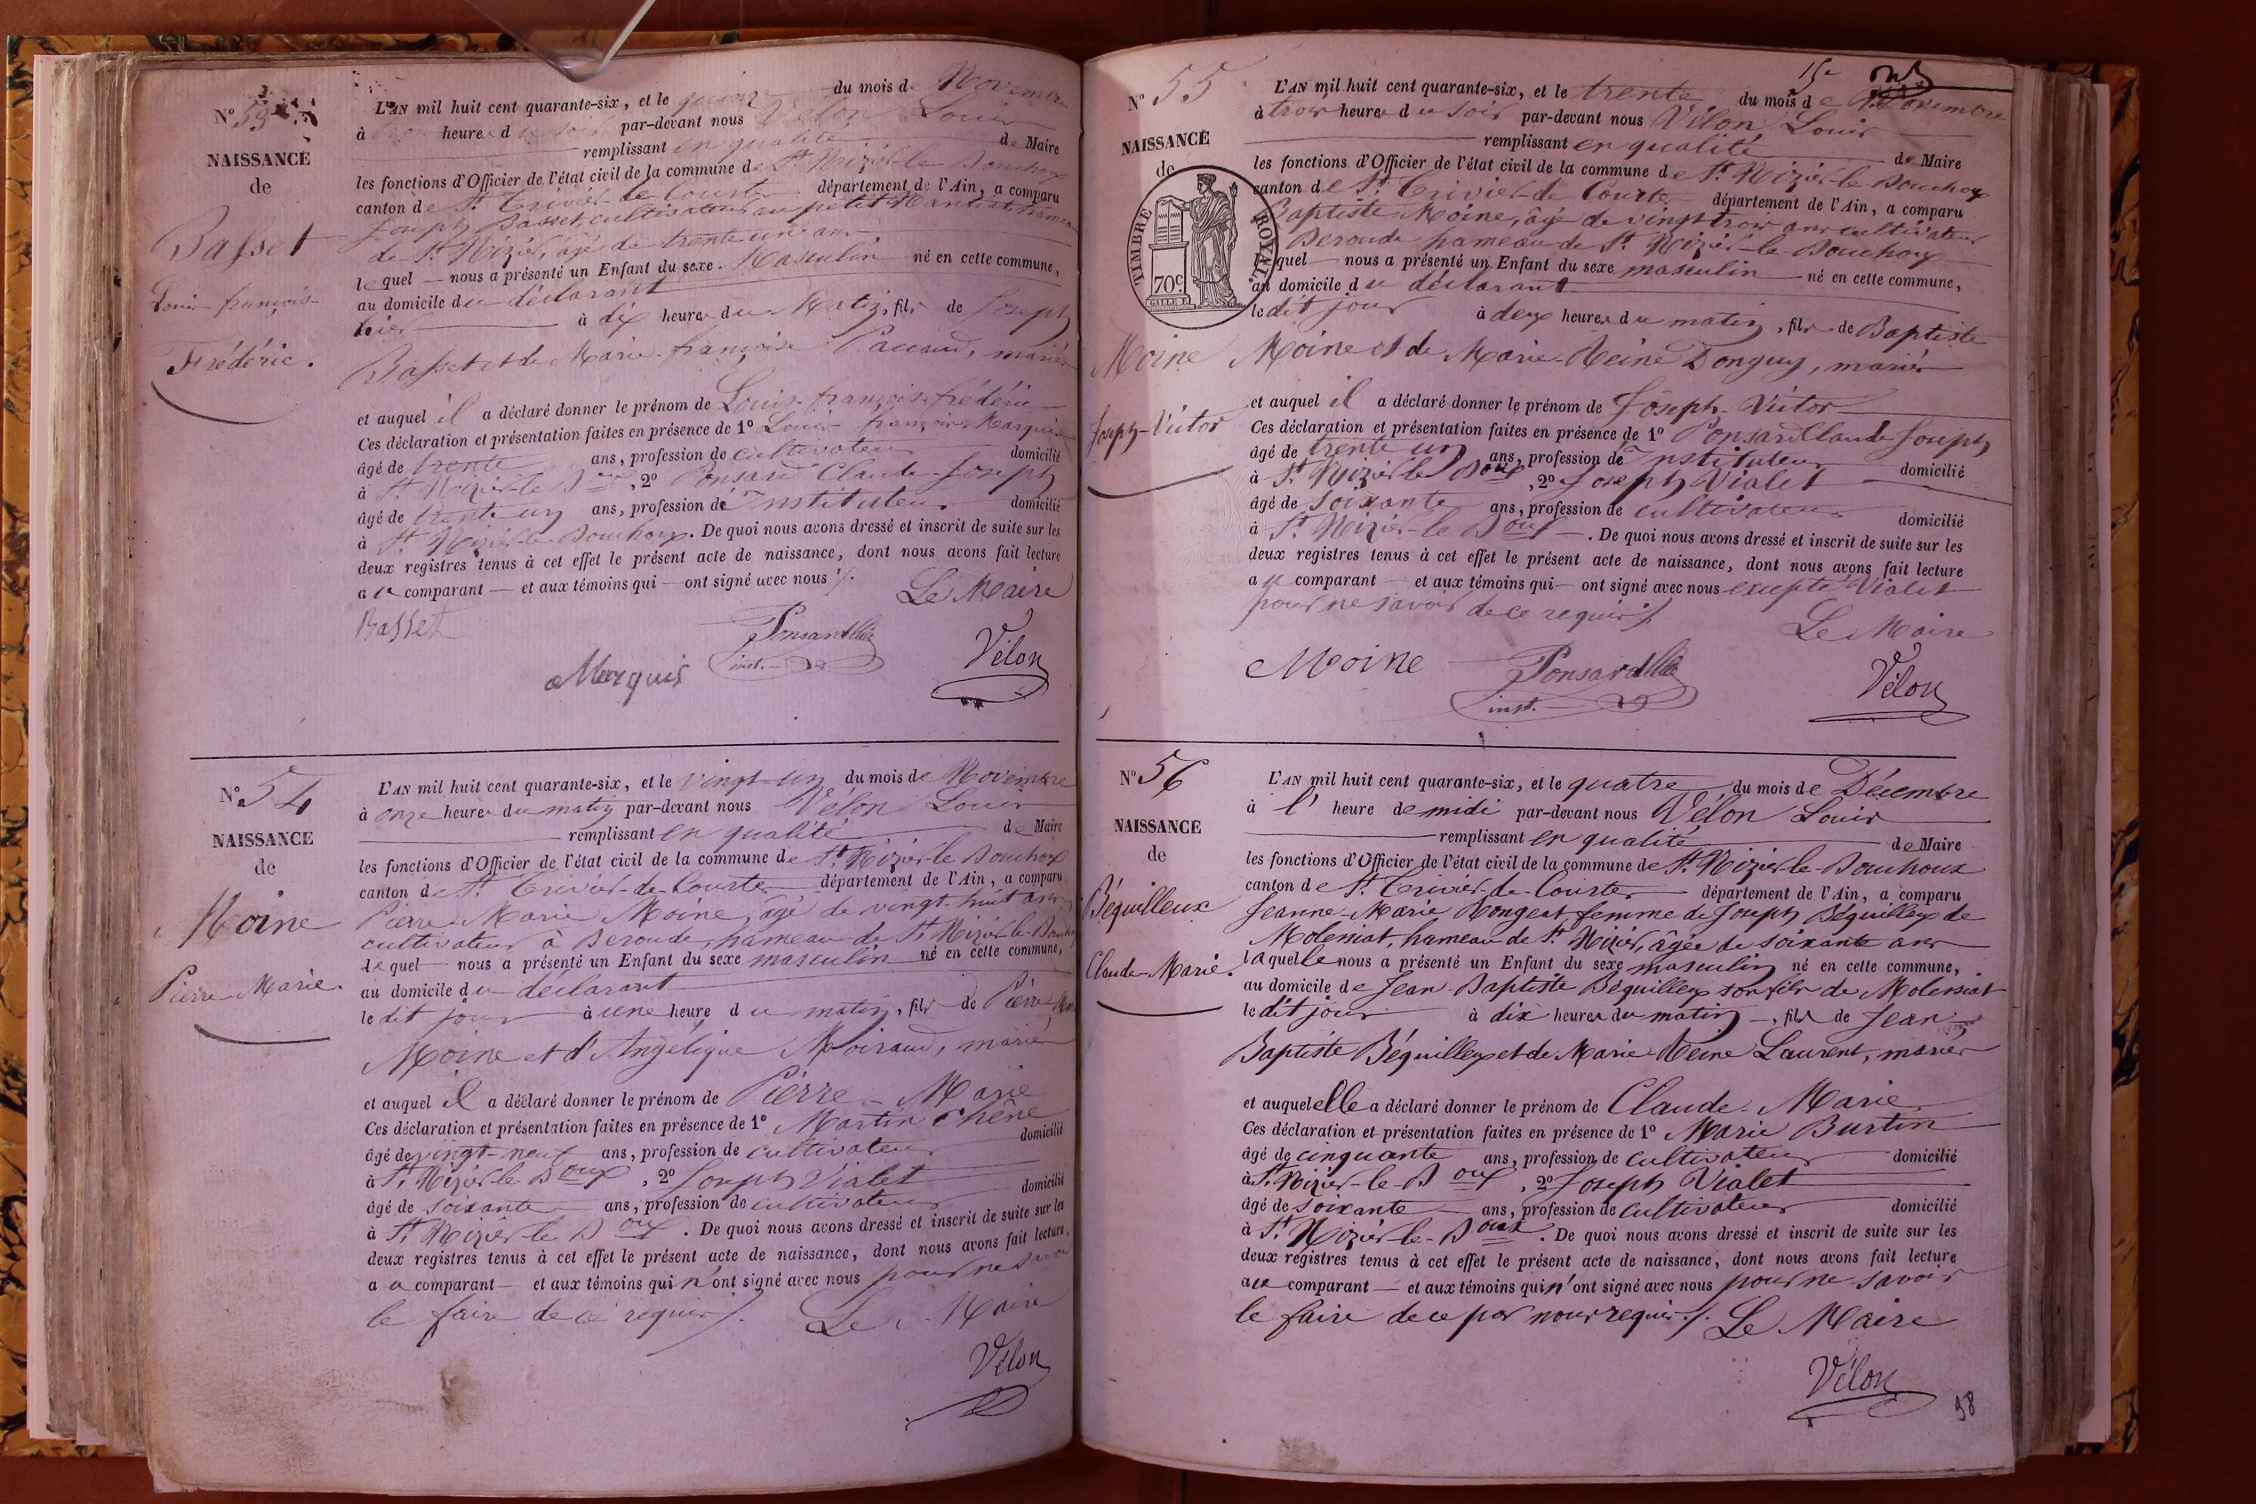 N° 53
NAISSANCE
de
Basset
Louis-françois-
Frédéric.
L'AN mil huit cent quarante-six, et le quinze du mois de Novembre
à heures du soir par-devant nous Vélon Louis
remplissant en qualité de Maire
les fonctions d'Officier de l'état civil de la commune de St Nizier-le-Bouchoux
canton de St. Trivier-de-Courtes département de l'Ain, a comparu
Joseph Basset, cultivateur au petit hameau
de St Nizier, âgé de trente un ans
lequel nous a présenté un Enfant du sexe Masculin né en cette commune,
au domicile du déclarant
hier à dix heures du Matin, fils de Joseph
Basset et de Marie-françoise Pacaud, mariés
et auquel il a déclaré donner le prénom de Louis-françois-frédéric
Ces déclaration et présentation faites en présence de 1° Louis françois Marquis
âgé de trente ans, profession de cultivateur domicilié
à St. Nizier-le-Boux, 2° Ponsard Claude-Joseph
âgé de trente un ans, profession de Instituteur domicilié
à St. Nizier-le-Bouchoux. De quoi nous avons dressé et inscrit de suite sur les
deux registres tenus à cet effet le présent acte de naissance, dont nous avons fait lecture
au comparant et aux témoins qui ont signé avec nous ./.
Le Maire
Basset
Ponsard
inst.
Marquis
Vélon
N° 54
NAISSANCE
de
Moine
Pierre-Marie.
L'AN mil huit cent quarante-six, et le vingt-un du mois de Novembre
à onze heures du matin par-devant nous Vélon Louis
remplissant en qualité de Maire
les fonctions d'Officier de l'état civil de la commune de St Nizier-le-Bouchoux
canton de St. Trivier-de-Courtes département de l'Ain, a comparu
Pierre-Marie Moine, âgé de vingt-huit ans
cultivateur à Beroude, hameau de St Nizier-le-Bouchoux
lequel nous a présenté un Enfant du sexe masculin né en cette commune,
au domicile du déclarant
le dit jour à une heure du matin, fils de Pierre-Marie
Moine et d'Angélique Moiraud, mariés
et auquel il a déclaré donner le prénom de Pierre-Marie
Ces déclaration et présentation faites en présence de 1° Martin Chêne
âgé de vingt-neuf ans, profession de cultivateur domicilié
à St. Nizier-le-Boux, 2° Joseph Vialet
âgé de soixante ans, profession de cultivateur domicilié
à St. Nizier-le-Boux. De quoi nous avons dressé et inscrit de suite sur les
deux registres tenus à cet effet le présent acte de naissance, dont nous avons fait lecture,
au comparant et aux témoins qui n'ont signé avec nous pour ne savoir
le faire de ce requis ./. Le Maire
Vélon
N° 55
NAISSANCE
de
TIMBRE ROYAL
70c.
Moine
Joseph-Victor
15e
L'AN mil huit cent quarante-six, et le trente du mois de Novembre
à trois heures du soir par-devant nous Vélon Louis
remplissant en qualité de Maire
les fonctions d'Officier de l'état civil de la commune de St. Nizier-le-Bouchoux
canton de St. Trivier-de-Courtes département de l'Ain, a comparu
Baptiste Moine, âgé de vingt trois ans cultivateur
Beroude hameau de St Nizier-le-Bouchoux
lequel nous a présenté un Enfant du sexe masculin né en cette commune,
au domicile du déclarant
le dit jour à deux heures du matin, fils de Baptiste
Moine et de Marie-Reine Donguy, mariés
et auquel il a déclaré donner le prénom de Joseph-Victor
Ces déclaration et présentation faites en présence de 1° Ponsard Claude Joseph
âgé de trente un ans, profession de Instituteur domicilié
à St. Nizier-le-Boux, 2° Joseph Vialet
âgé de soixante ans, profession de cultivateur domicilié
à St. Nizier-le-Boux. De quoi nous avons dressé et inscrit de suite sur les
deux registres tenus à cet effet le présent acte de naissance, dont nous avons fait lecture
au comparant et aux témoins qui ont signé avec nous excepté Vialet
pour ne savoir de ce requis ./.
Le Maire
Moine
Ponsard
inst.
Vélon
N° 56
NAISSANCE
de
Béquilleux
Claude-Marie.
L'AN mil huit cent quarante-six, et le quatre du mois de Décembre
à l' heure de midi par-devant nous Vélon Louis
remplissant en qualité de Maire
les fonctions d'Officier de l'état civil de la commune de St. Nizier-le-Bouchoux
canton de St. Trivier-de-Courtes département de l'Ain, a comparu
Jeanne-Marie Rongeat femme de Joseph Béquilleux de
Moleniat, hameau de St. Nizier, âgée de soixante ans
laquelle nous a présenté un Enfant du sexe masculin né en cette commune,
au domicile de Jean-Baptiste Béquilleux son fils de Moleniat
le dit jour à dix heures du matin, fils de Jean-
Baptiste Béquilleux et de Marie-Reine Laurent, mariés
et auquel elle a déclaré donner le prénom de Claude-Marie
Ces déclaration et présentation faites en présence de 1° Marie Burtin
âgé de cinquante ans, profession de cultivateur domicilié
à St. Nizier-le-Boux, 2° Joseph Vialet
âgé de soixante ans, profession de cultivateur domicilié
à St. Nizier-le-Boux. De quoi nous avons dressé et inscrit de suite sur les
deux registres tenus à cet effet le présent acte de naissance, dont nous avons fait lecture
au comparant et aux témoins qui n'ont signé avec nous pour ne savoir
le faire de ce par nous requis ./. Le Maire
Vélon
98